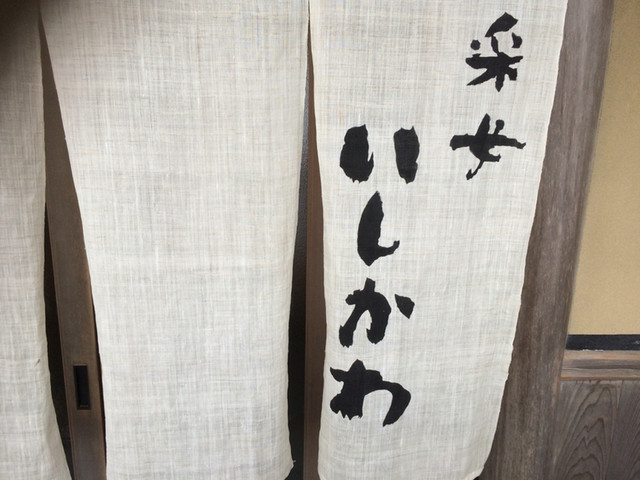 采女
いしかわ